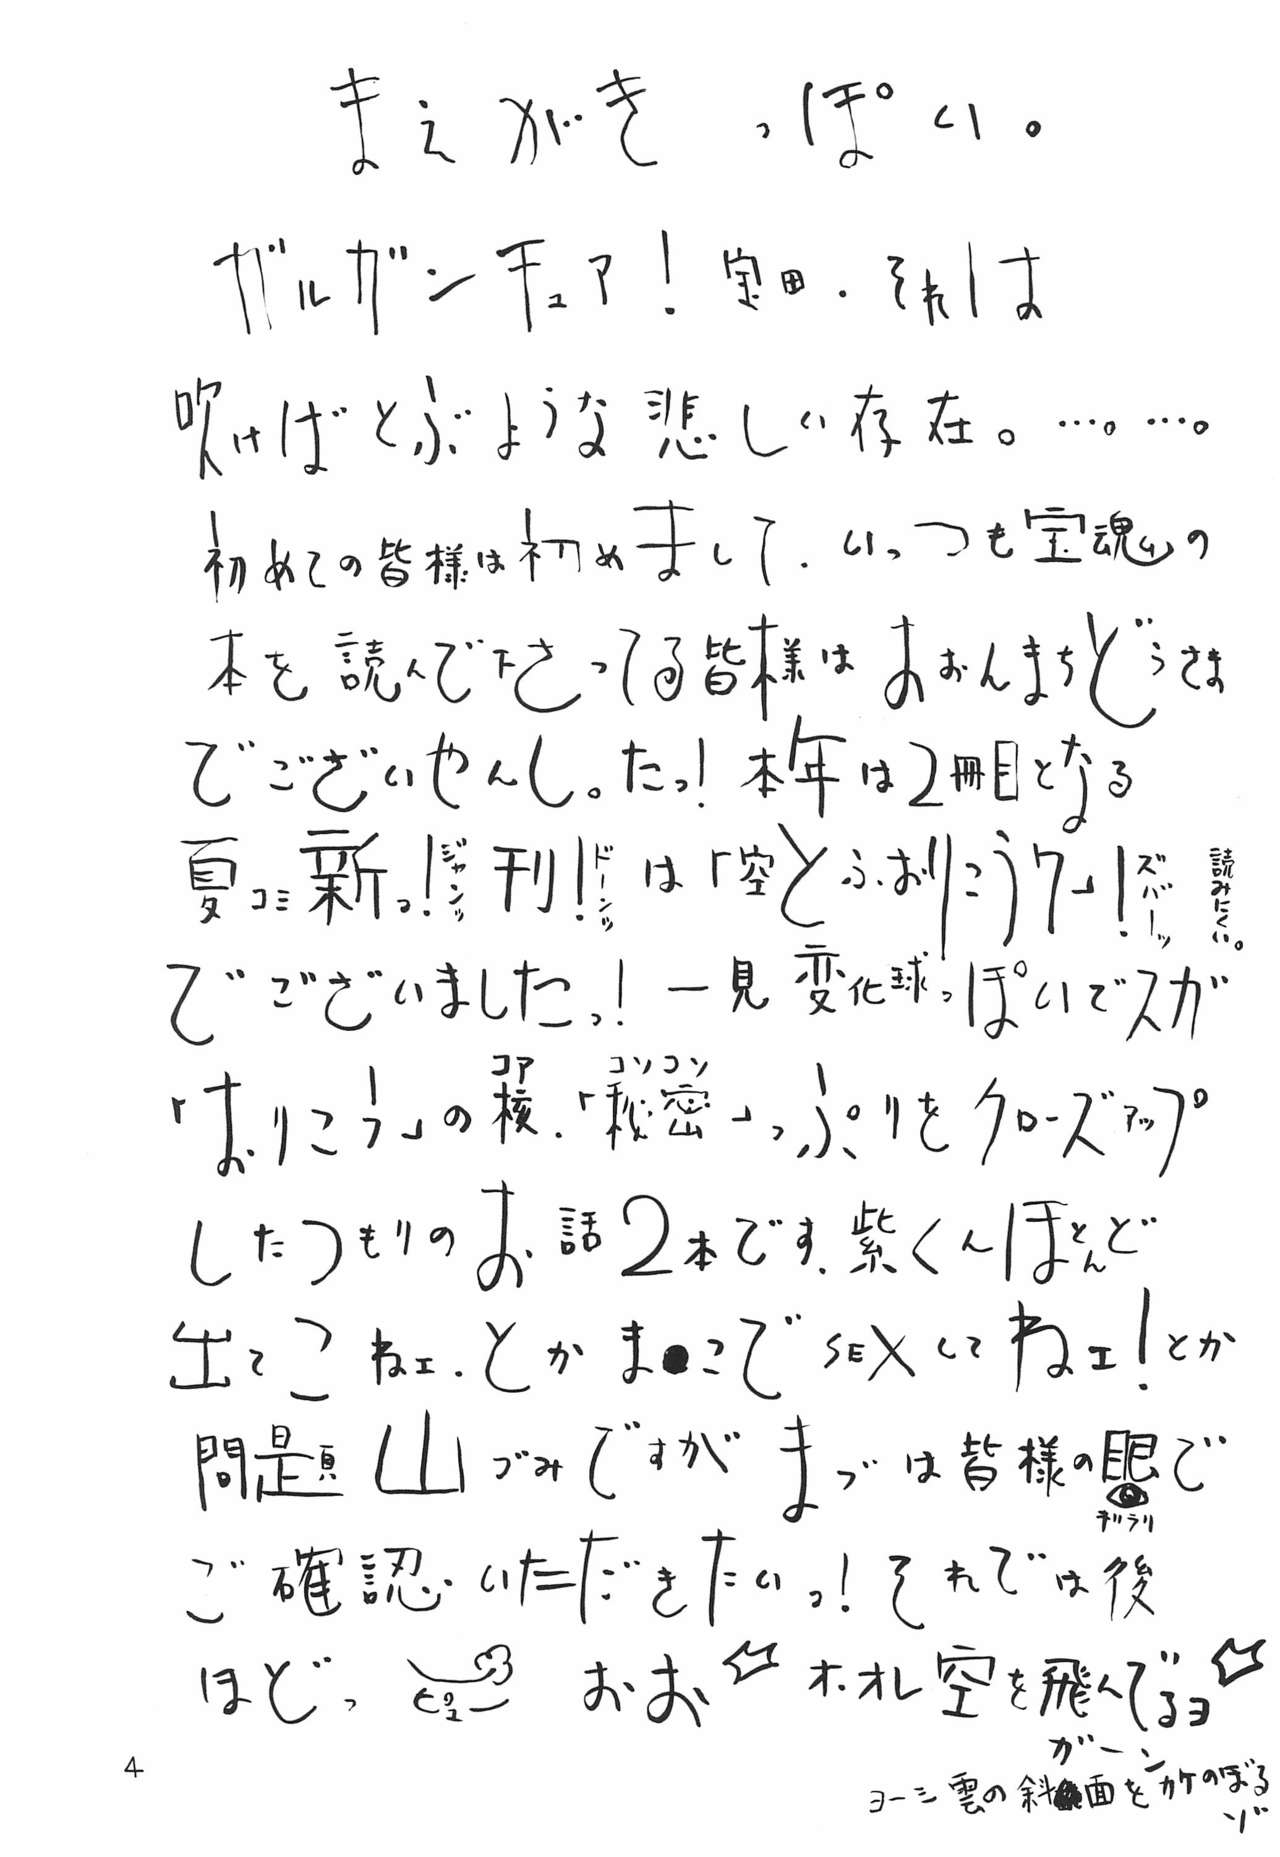 まえがきっぽい。
ガルガンチュア！宝田．それは
吹けばとぶような悲しい存在。…。…。
初めての皆様は初めまして．いっつも宝魂の
本を読んで下さってる皆様はおおんまちどうさま
でございやんし。たっ！本年は2冊目となる
夏コミ新っ！ジャンッ刊！ドーンッは「空とふおりこうワ」！ズバーッ
読みにくい。
でございましたっ！一見変化球っぽいでスガ
コア コソコソ
「おりこう」の核．「秘密」っぷりをクローズアップ
したつもりのお話2本です．紫くんほとんど
出てこねェ．とかま●こでSEXしてねェ！とか
問題山づみですがまづは皆様の眼で
ギラリ
ご確認いただきたいっ！それでは後
ほどっ ピュー おお ホ．オレ空を飛んでるヨ
ガーン
ヨーシ雲の斜面をカケのぼる
ゾ
4